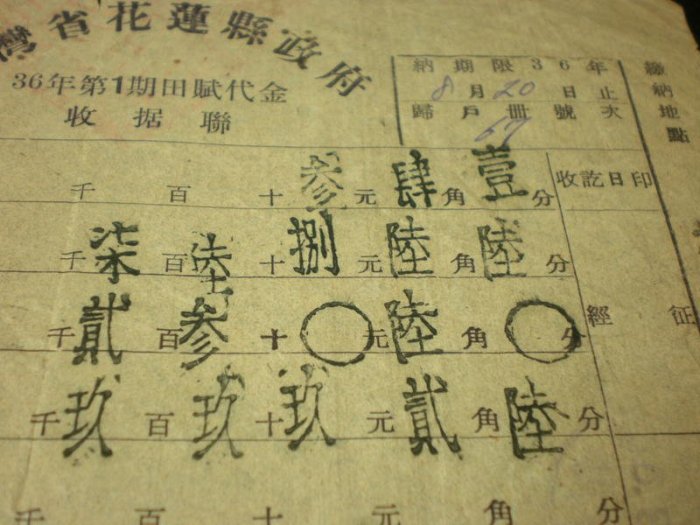 灣省花蓮縣政府
36年第1期田賦代金
收据聯
納期限36年
8月20日止
歸戶冊號次
67
繳納地點
收訖日印
千百十参元肆角壹分
千柒百陸十捌元陸角陸分
千貳百参十〇元陸角〇分
經征
千玖百玖十玖元貳角陸分
千百十元角分